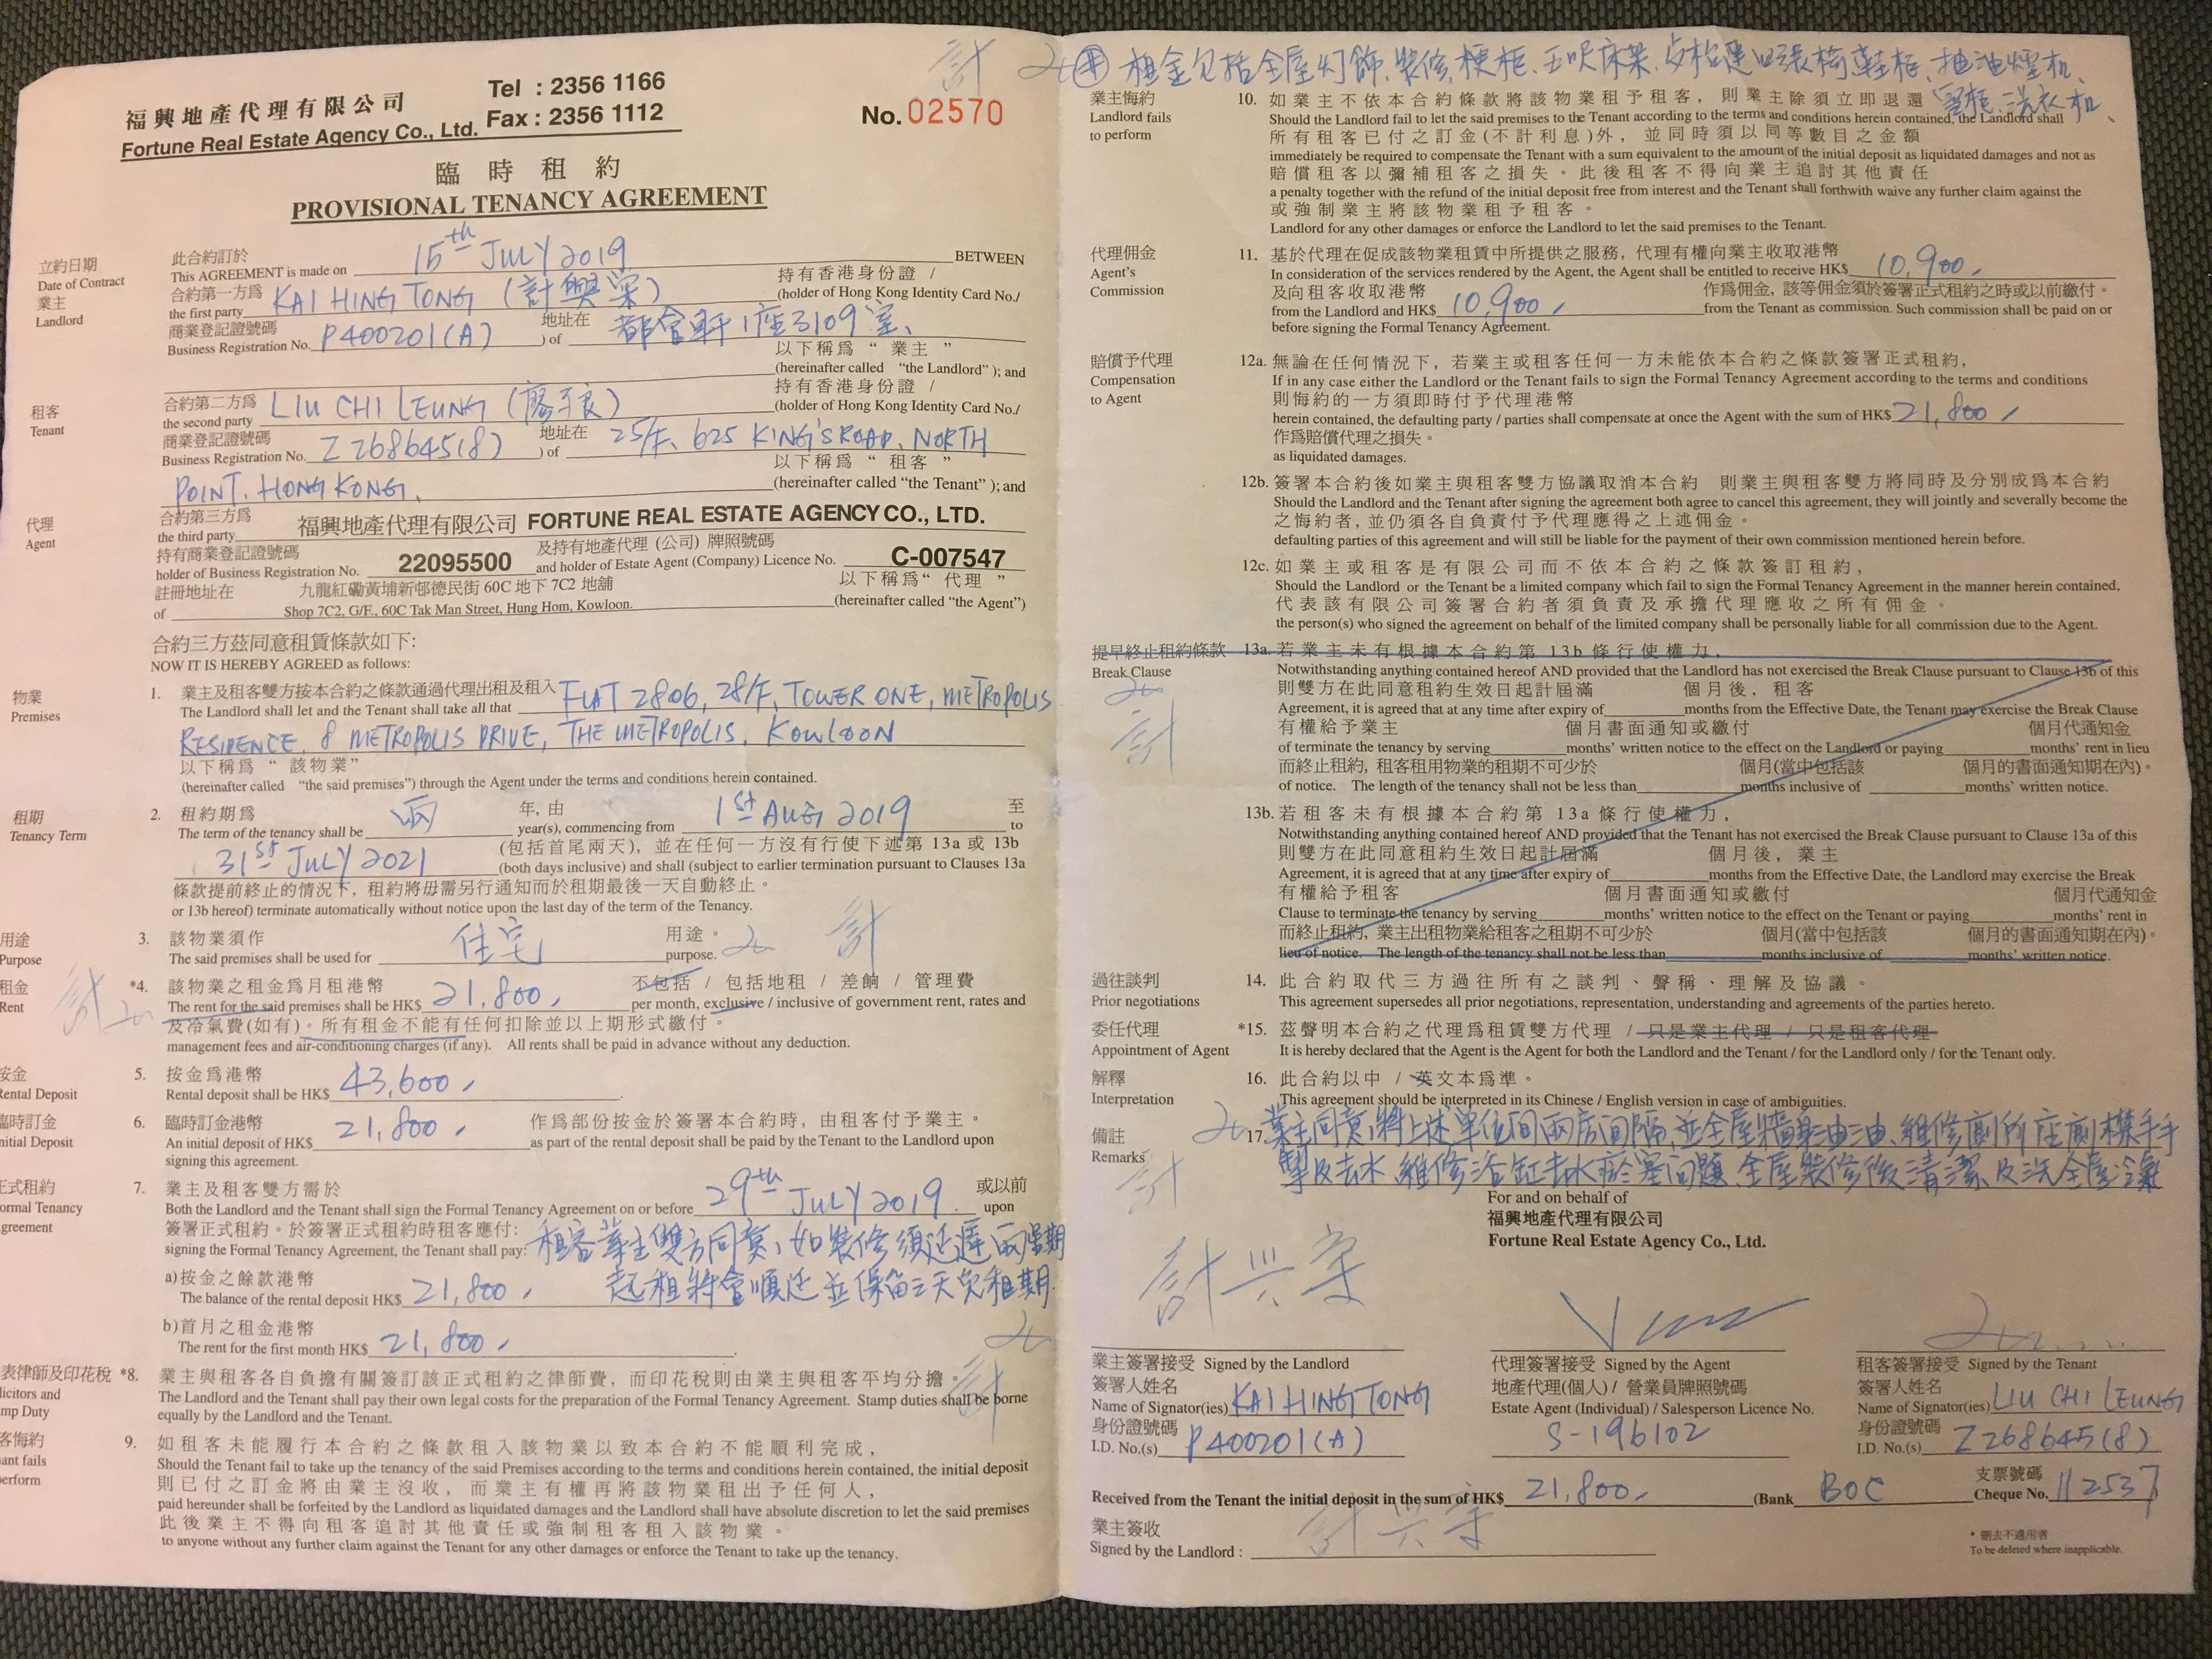 福興地產代理有限公司
Fortune Real Estate Agency Co., Ltd.
Tel : 2356 1166
Fax : 2356 1112
No. 02570
臨時租約
PROVISIONAL TENANCY AGREEMENT
立約日期
Date of Contract
此合約訂於
This AGREEMENT is made on 15th JULY 2019 BETWEEN
業主
Landlord
合約第一方爲 持有香港身份證 /
the first party KAI HING TONG (計興棠) (holder of Hong Kong Identity Card No./
商業登記證號碼 地址在
Business Registration No. P400201(A) ) of 都會軒1座3109室、
以下稱爲 “ 業主 ”
(hereinafter called “the Landlord” ); and
租客
Tenant
合約第二方爲 持有香港身份證 /
the second party LIU CHI LEUNG (廖子良) (holder of Hong Kong Identity Card No./
商業登記證號碼 地址在
Business Registration No. Z268645(8) ) of 25/F, 625 KING'S ROAD, NORTH
以下稱爲 “ 租客 ”
POINT, HONG KONG, (hereinafter called “the Tenant” ); and
代理
Agent
合約第三方爲
the third party 福興地產代理有限公司 FORTUNE REAL ESTATE AGENCY CO., LTD.
持有商業登記證號碼 及持有地產代理 (公司) 牌照號碼
holder of Business Registration No. 22095500 and holder of Estate Agent (Company) Licence No. C-007547
註冊地址在 九龍紅磡黃埔新邨德民街 60C 地下 7C2 地舖 以下稱爲“ 代理 ”
of Shop 7C2, G/F., 60C Tak Man Street, Hung Hom, Kowloon. (hereinafter called “the Agent”)
合約三方茲同意租賃條款如下:
NOW IT IS HEREBY AGREED as follows:
物業
Premises
1. 業主及租客雙方按本合約之條款通過代理出租及租入
The Landlord shall let and the Tenant shall take all that FLAT 2806, 28/F, TOWER ONE, METROPOLIS
RESIDENCE, 8 METROPOLIS DRIVE, THE METROPOLIS, KOWLOON
以下稱爲 “ 該物業”
(hereinafter called “the said premises”) through the Agent under the terms and conditions herein contained.
租期
Tenancy Term
2. 租約期爲 兩 年, 由 至
The term of the tenancy shall be year(s), commencing from 1st AUG 2019 to
31st JULY 2021 (包括首尾兩天), 並在任何一方沒有行使下述第 13a 或 13b
(both days inclusive) and shall (subject to earlier termination pursuant to Clauses 13a
條款提前終止的情況下, 租約將毋需另行通知而於租期最後一天自動終止。
or 13b hereof) terminate automatically without notice upon the last day of the term of the Tenancy.
用途
Purpose
3. 該物業須作 住宅 用途。
The said premises shall be used for purpose.
計
租金
Rent
*4. 該物業之租金爲月租港幣 不包括 / 包括地租 / 差餉 / 管理費
The rent for the said premises shall be HK$ 21,800, per month, exclusive / inclusive of government rent, rates and
計
及冷氣費(如有)。所有租金不能有任何扣除並以上期形式繳付。
management fees and air-conditioning charges (if any). All rents shall be paid in advance without any deduction.
按金
Rental Deposit
5. 按金爲港幣
Rental deposit shall be HK$ 43,600,
臨時訂金
Initial Deposit
6. 臨時訂金港幣 作爲部份按金於簽署本合約時, 由租客付予業主。
An initial deposit of HK$ 21,800, as part of the rental deposit shall be paid by the Tenant to the Landlord upon
signing this agreement.
正式租約
Formal Tenancy
Agreement
7. 業主及租客雙方需於 或以前
Both the Landlord and the Tenant shall sign the Formal Tenancy Agreement on or before 29th JULY 2019. upon
簽署正式租約。於簽署正式租約時租客應付:
signing the Formal Tenancy Agreement, the Tenant shall pay: 租客業主雙方同意, 如裝修須延遲兩星期
a) 按金之餘款港幣 起租將會順延並保留三天免租期.
The balance of the rental deposit HK$ 21,800,
b) 首月之租金港幣
The rent for the first month HK$ 21,800,
計
表律師及印花稅
licitors and
mp Duty
*8. 業主與租客各自負擔有關簽訂該正式租約之律師費, 而印花稅則由業主與租客平均分擔。
The Landlord and the Tenant shall pay their own legal costs for the preparation of the Formal Tenancy Agreement. Stamp duties shall be borne
equally by the Landlord and the Tenant.
客悔約
ant fails
perform
9. 如租客未能履行本合約之條款租入該物業以致本合約不能順利完成,
Should the Tenant fail to take up the tenancy of the said Premises according to the terms and conditions herein contained, the initial deposit
則已付之訂金將由業主沒收, 而業主有權再將該物業租出予任何人,
paid hereunder shall be forfeited by the Landlord as liquidated damages and the Landlord shall have absolute discretion to let the said premises
此後業主不得向租客追討其他責任或強制租客租入該物業。
to anyone without any further claim against the Tenant for any other damages or enforce the Tenant to take up the tenancy.
計
租金包括全屋灯飾、裝修、梗柜、五呎床架、 枱連四張椅、鞋柜、抽油煙机、
柜、洗衣机、
業主悔約
Landlord fails
to perform
10. 如業主不依本合約條款將該物業租予租客, 則業主除須立即退還
Should the Landlord fail to let the said premises to the Tenant according to the terms and conditions herein contained, the Landlord shall
所有租客已付之訂金(不計利息)外, 並同時須以同等數目之金額
immediately be required to compensate the Tenant with a sum equivalent to the amount of the initial deposit as liquidated damages and not as
賠償租客以彌補租客之損失。此後租客不得向業主追討其他責任
a penalty together with the refund of the initial deposit free from interest and the Tenant shall forthwith waive any further claim against the
或強制業主將該物業租予租客。
Landlord for any other damages or enforce the Landlord to let the said premises to the Tenant.
代理佣金
Agent's
Commission
11. 基於代理在促成該物業租賃中所提供之服務, 代理有權向業主收取港幣
In consideration of the services rendered by the Agent, the Agent shall be entitled to receive HK$ 10,900,
及向租客收取港幣 作爲佣金, 該等佣金須於簽署正式租約之時或以前繳付。
from the Landlord and HK$ 10,900, from the Tenant as commission. Such commission shall be paid on or
before signing the Formal Tenancy Agreement.
賠償予代理
Compensation
to Agent
12a. 無論在任何情況下, 若業主或租客任何一方未能依本合約之條款簽署正式租約,
If in any case either the Landlord or the Tenant fails to sign the Formal Tenancy Agreement according to the terms and conditions
則悔約的一方須即時付予代理港幣
herein contained, the defaulting party / parties shall compensate at once the Agent with the sum of HK$ 21,800,
作爲賠償代理之損失。
as liquidated damages.
12b. 簽署本合約後如業主與租客雙方協議取消本合約 則業主與租客雙方將同時及分別成爲本合約
Should the Landlord and the Tenant after signing the agreement both agree to cancel this agreement, they will jointly and severally become the
之悔約者, 並仍須各自負責付予代理應得之上述佣金。
defaulting parties of this agreement and will still be liable for the payment of their own commission mentioned herein before.
12c. 如業主或租客是有限公司而不依本合約之條款簽訂租約,
Should the Landlord or the Tenant be a limited company which fail to sign the Formal Tenancy Agreement in the manner herein contained,
代表該有限公司簽署合約者須負責及承擔代理應收之所有佣金。
the person(s) who signed the agreement on behalf of the limited company shall be personally liable for all commission due to the Agent.
提早終止租約條款
Break Clause
計
13a. 若業主未有根據本合約第 13b 條行使權力,
Notwithstanding anything contained hereof AND provided that the Landlord has not exercised the Break Clause pursuant to Clause 13b of this
則雙方在此同意租約生效日起計屆滿 個月後, 租客
Agreement, it is agreed that at any time after expiry of months from the Effective Date, the Tenant may exercise the Break Clause
有權給予業主 個月書面通知或繳付 個月代通知金
of terminate the tenancy by serving months' written notice to the effect on the Landlord or paying months' rent in lieu
而終止租約, 租客租用物業的租期不可少於 個月(當中包括該 個月的書面通知期在內)。
of notice. The length of the tenancy shall not be less than months inclusive of months' written notice.
13b. 若租客未有根據本合約第 13a 條行使權力,
Notwithstanding anything contained hereof AND provided that the Tenant has not exercised the Break Clause pursuant to Clause 13a of this
則雙方在此同意租約生效日起計屆滿 個月後, 業主
Agreement, it is agreed that at any time after expiry of months from the Effective Date, the Landlord may exercise the Break
有權給予租客 個月書面通知或繳付 個月代通知金
Clause to terminate the tenancy by serving months' written notice to the effect on the Tenant or paying months' rent in
而終止租約, 業主出租物業給租客之租期不可少於 個月(當中包括該 個月的書面通知期在內)。
lieu of notice. The length of the tenancy shall not be less than months inclusive of months' written notice.
過往談判
Prior negotiations
14. 此合約取代三方過往所有之談判、聲稱、理解及協議。
This agreement supersedes all prior negotiations, representation, understanding and agreements of the parties hereto.
委任代理
Appointment of Agent
*15. 茲聲明本合約之代理爲租賃雙方代理 / 只是業主代理 / 只是租客代理
It is hereby declared that the Agent is the Agent for both the Landlord and the Tenant / for the Landlord only / for the Tenant only.
解釋
Interpretation
16. 此合約以中 / 英文本爲準。
This agreement should be interpreted in its Chinese / English version in case of ambiguities.
備註
Remarks
17. 業主同意將上述單位間兩房間隔, 並全屋牆身油油、維修廁所座廁 手
掣及去水、維修浴缸去水瘀塞问題、全屋裝修後清潔、及洗全屋冷氣
計
For and on behalf of
福興地產代理有限公司
Fortune Real Estate Agency Co., Ltd.
業主簽署接受 Signed by the Landlord
簽署人姓名
Name of Signator(ies) KAI HING TONG
身份證號碼
I.D. No.(s) P400201(A)
代理簽署接受 Signed by the Agent
地產代理(個人) / 營業員牌照號碼
Estate Agent (Individual) / Salesperson Licence No.
S-196102
租客簽署接受 Signed by the Tenant
簽署人姓名
Name of Signator(ies) LIU CHI LEUNG
身份證號碼
I.D. No.(s) Z268645(8)
支票號碼
Received from the Tenant the initial deposit in the sum of HK$ 21,800, (Bank BOC Cheque No. 112537
業主簽收
Signed by the Landlord :
* 刪去不適用者
To be deleted where inapplicable.